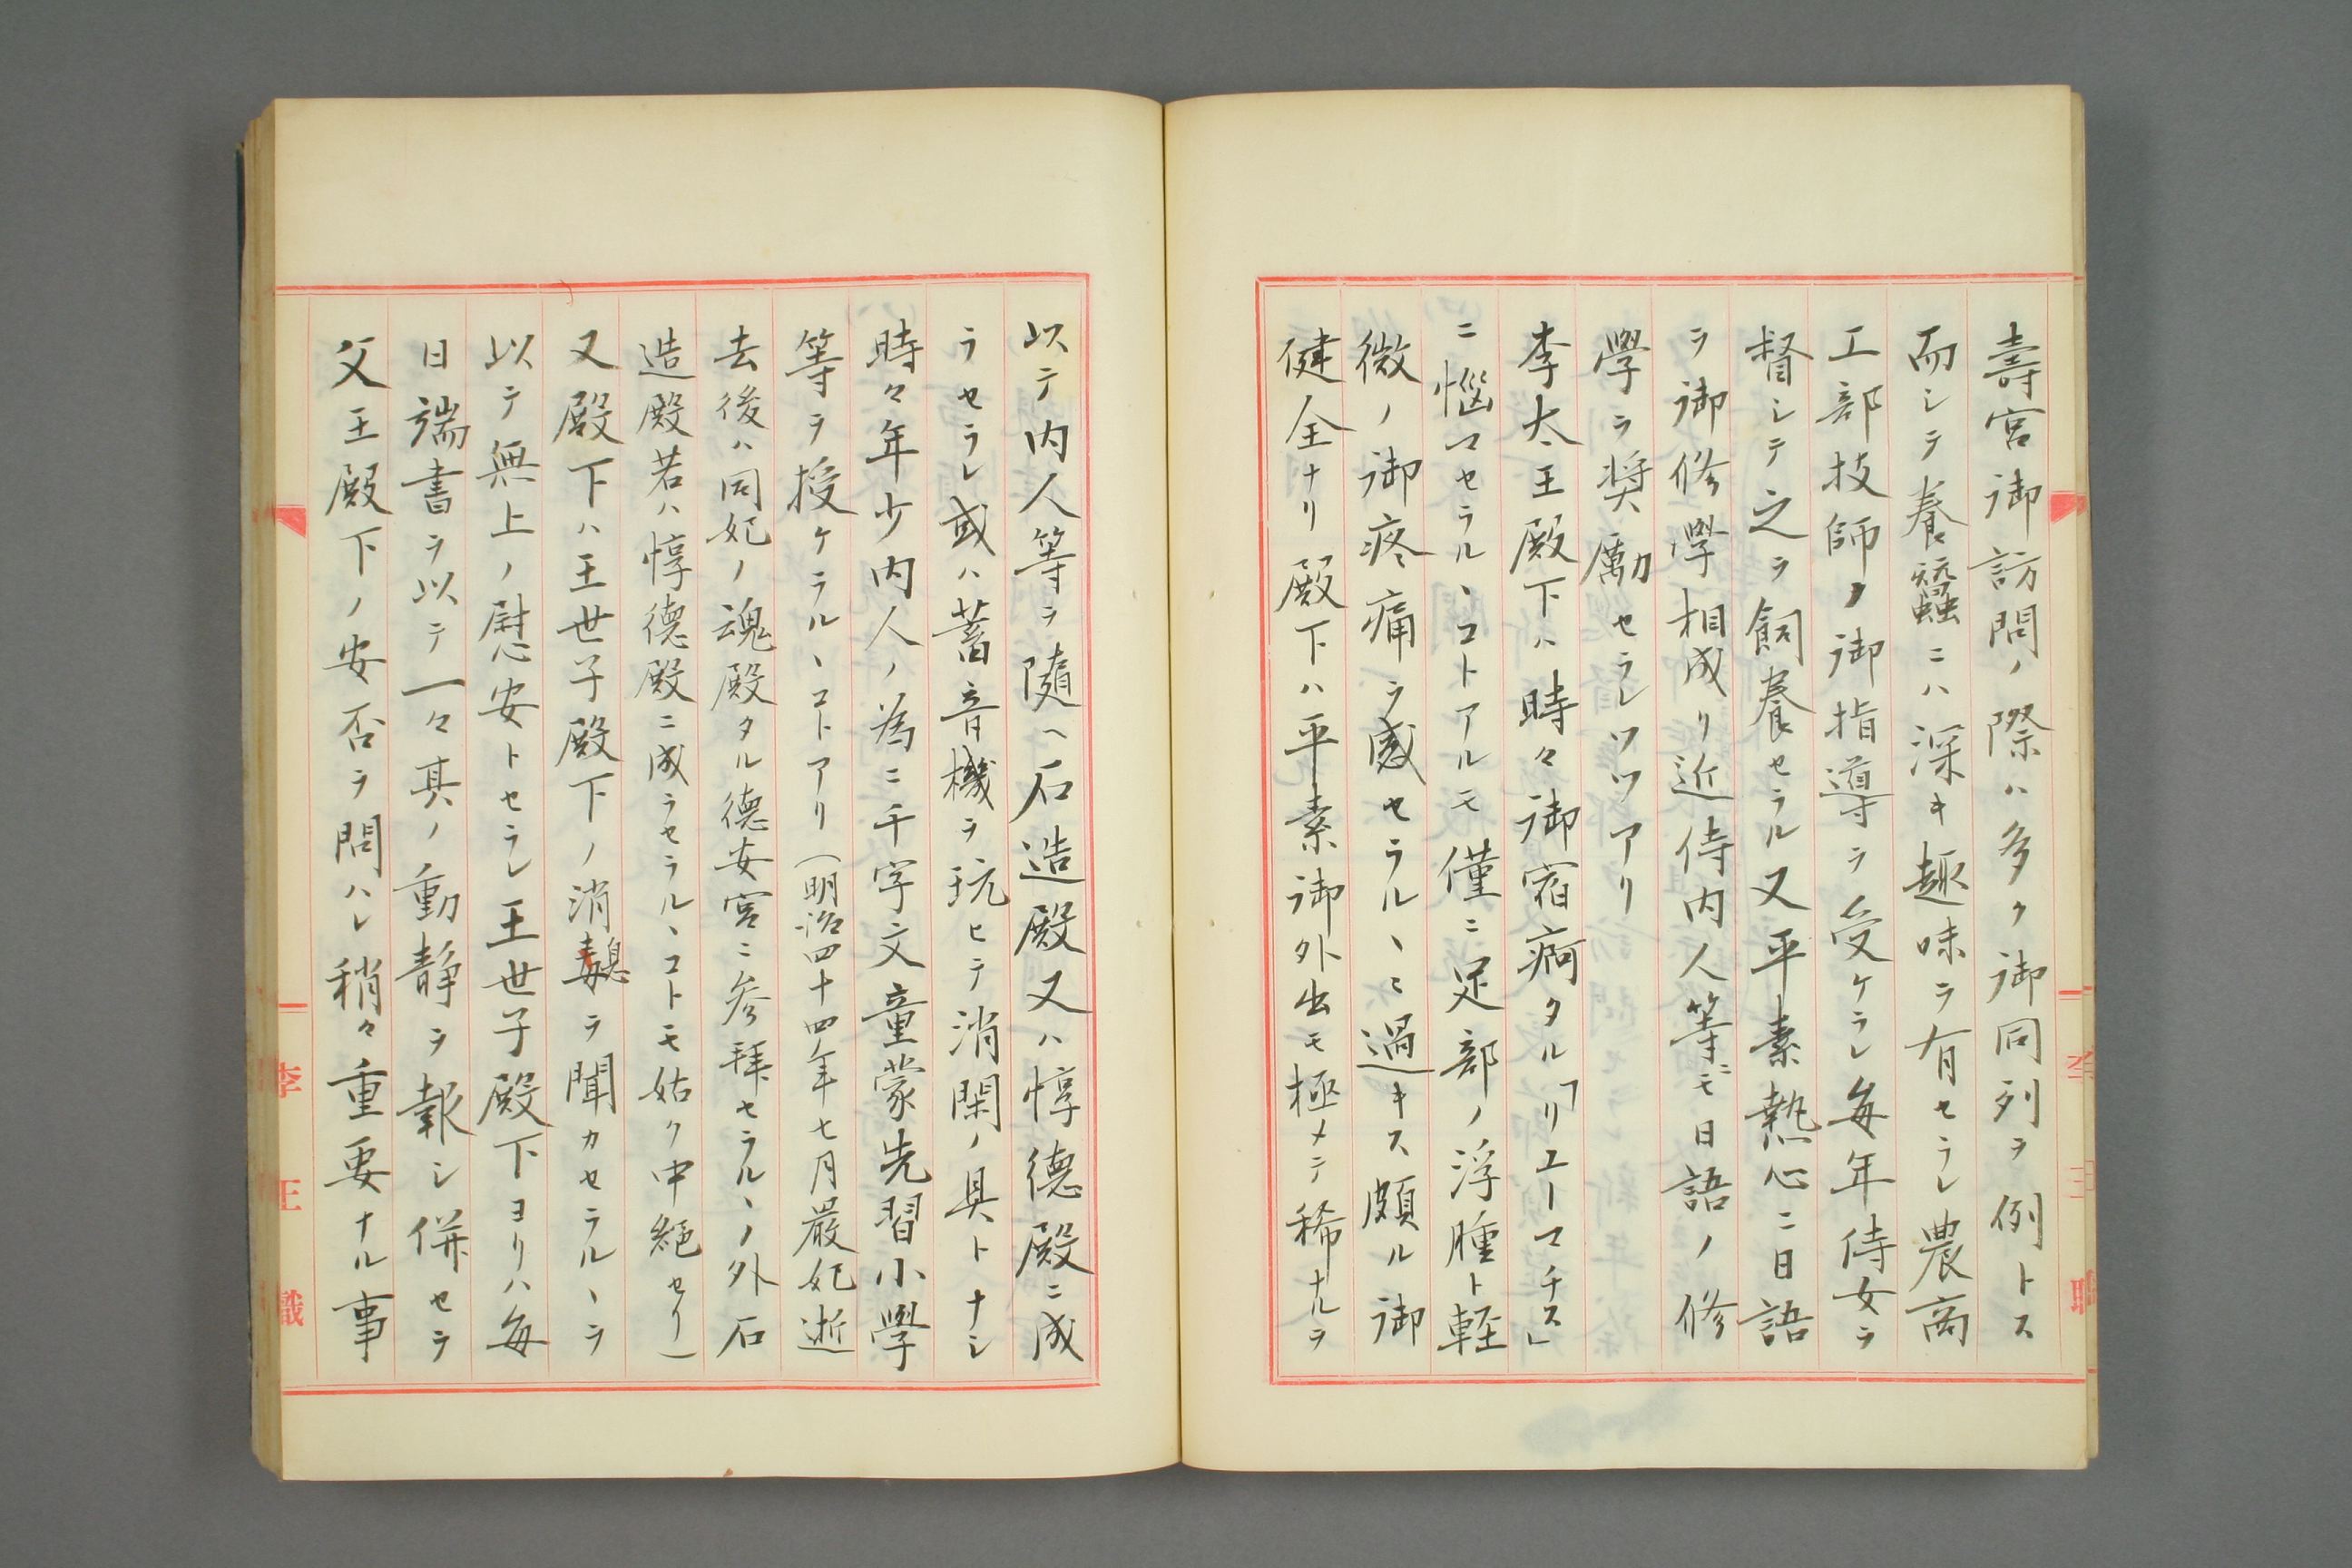 壽宮御訪問ノ際ハ多ク御同列ヲ例トス
而シテ養蠶ニハ深キ趣味ヲ有セラレ農商
工部技師ノ御指導ヲ受ケラレ毎年侍女ヲ
督シテ之ヲ飼養セラル又平素熱心ニ日語
ヲ御修學相成リ近侍内人等ヲモ日語ノ修
學ヲ奨勵セラレツツアリ
李太王殿下ハ時々御宿痾タル「リユーマチス」
ニ惱マセラルヽコトアルモ僅ニ足部ノ浮腫ト輕
微ノ御疼痛ヲ感セラルヽニ過キス頗ル御
健全ナリ殿下ハ平素御外出モ極メテ稀ナルヲ
以テ内人等ヲ隨ヘ石造殿又ハ惇德殿ニ成
ラセラレ或ハ蓄音機ヲ玩ヒテ消閑ノ具トナシ
時々年少内人ノ為ニ千字文童蒙先習小學
等ヲ授ケラルヽコトアリ(明治四十四年七月嚴妃逝
去後ハ同妃ノ魂殿タル德安宮ニ参拜セラルヽノ外石
造殿若ハ惇德殿ニ成ラセラルヽコトモ姑ク中絶セリ)
又殿下ハ王世子殿下ノ消息ヲ聞カセラルヽヲ
以テ無上ノ慰安トセラレ王世子殿下ヨリハ毎
日端書ヲ以テ一々其ノ動静ヲ報シ併セテ
父王殿下ノ安否ヲ問ハレ稍々重要ナル事
李王職